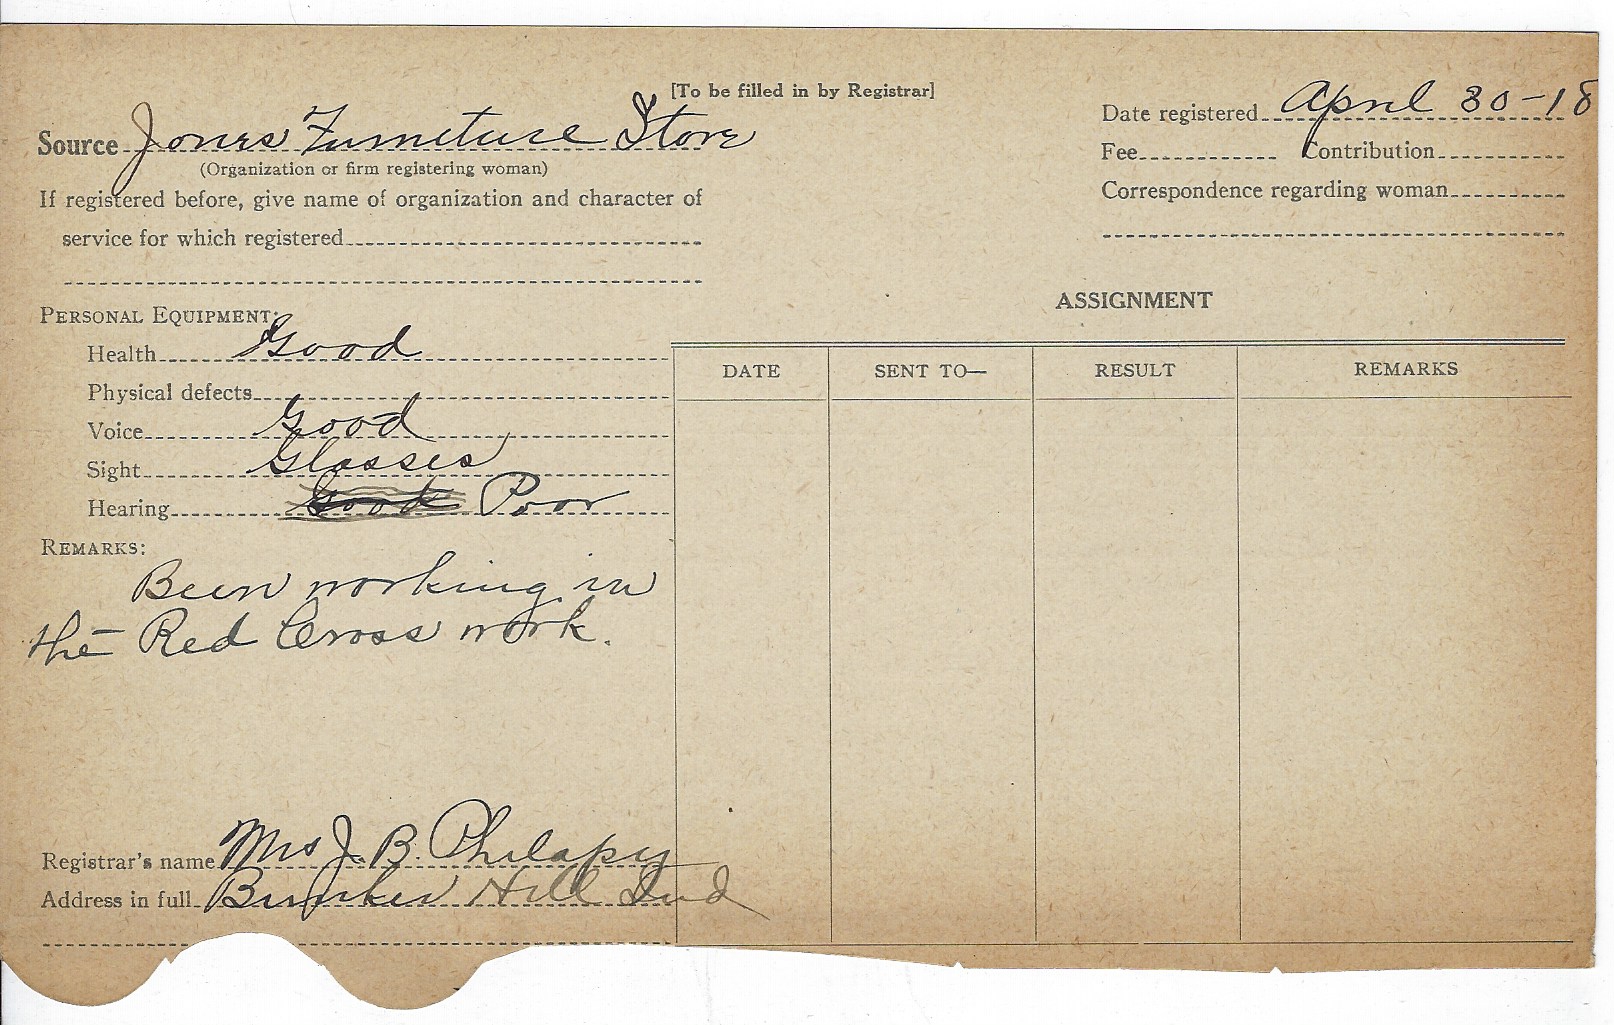 [To be filled in by Registrar]
Source Jones Furneture Store
(Organization or firm registering woman)
If registered before, give name of organization and character of
service for which registered
Date registered April 30-18
Fee Contribution
Correspondence regarding woman
PERSONAL EQUIPMENT:
Health Good
Physical defects
Voice Good
Sight Glasses
Hearing Good Poor
REMARKS:
Been working in
the Red Cross work.
Registrar's name Mrs J. B. Philapy
Address in full Bunker Hill Ind
ASSIGNMENT
DATE SENT TO— RESULT REMARKS